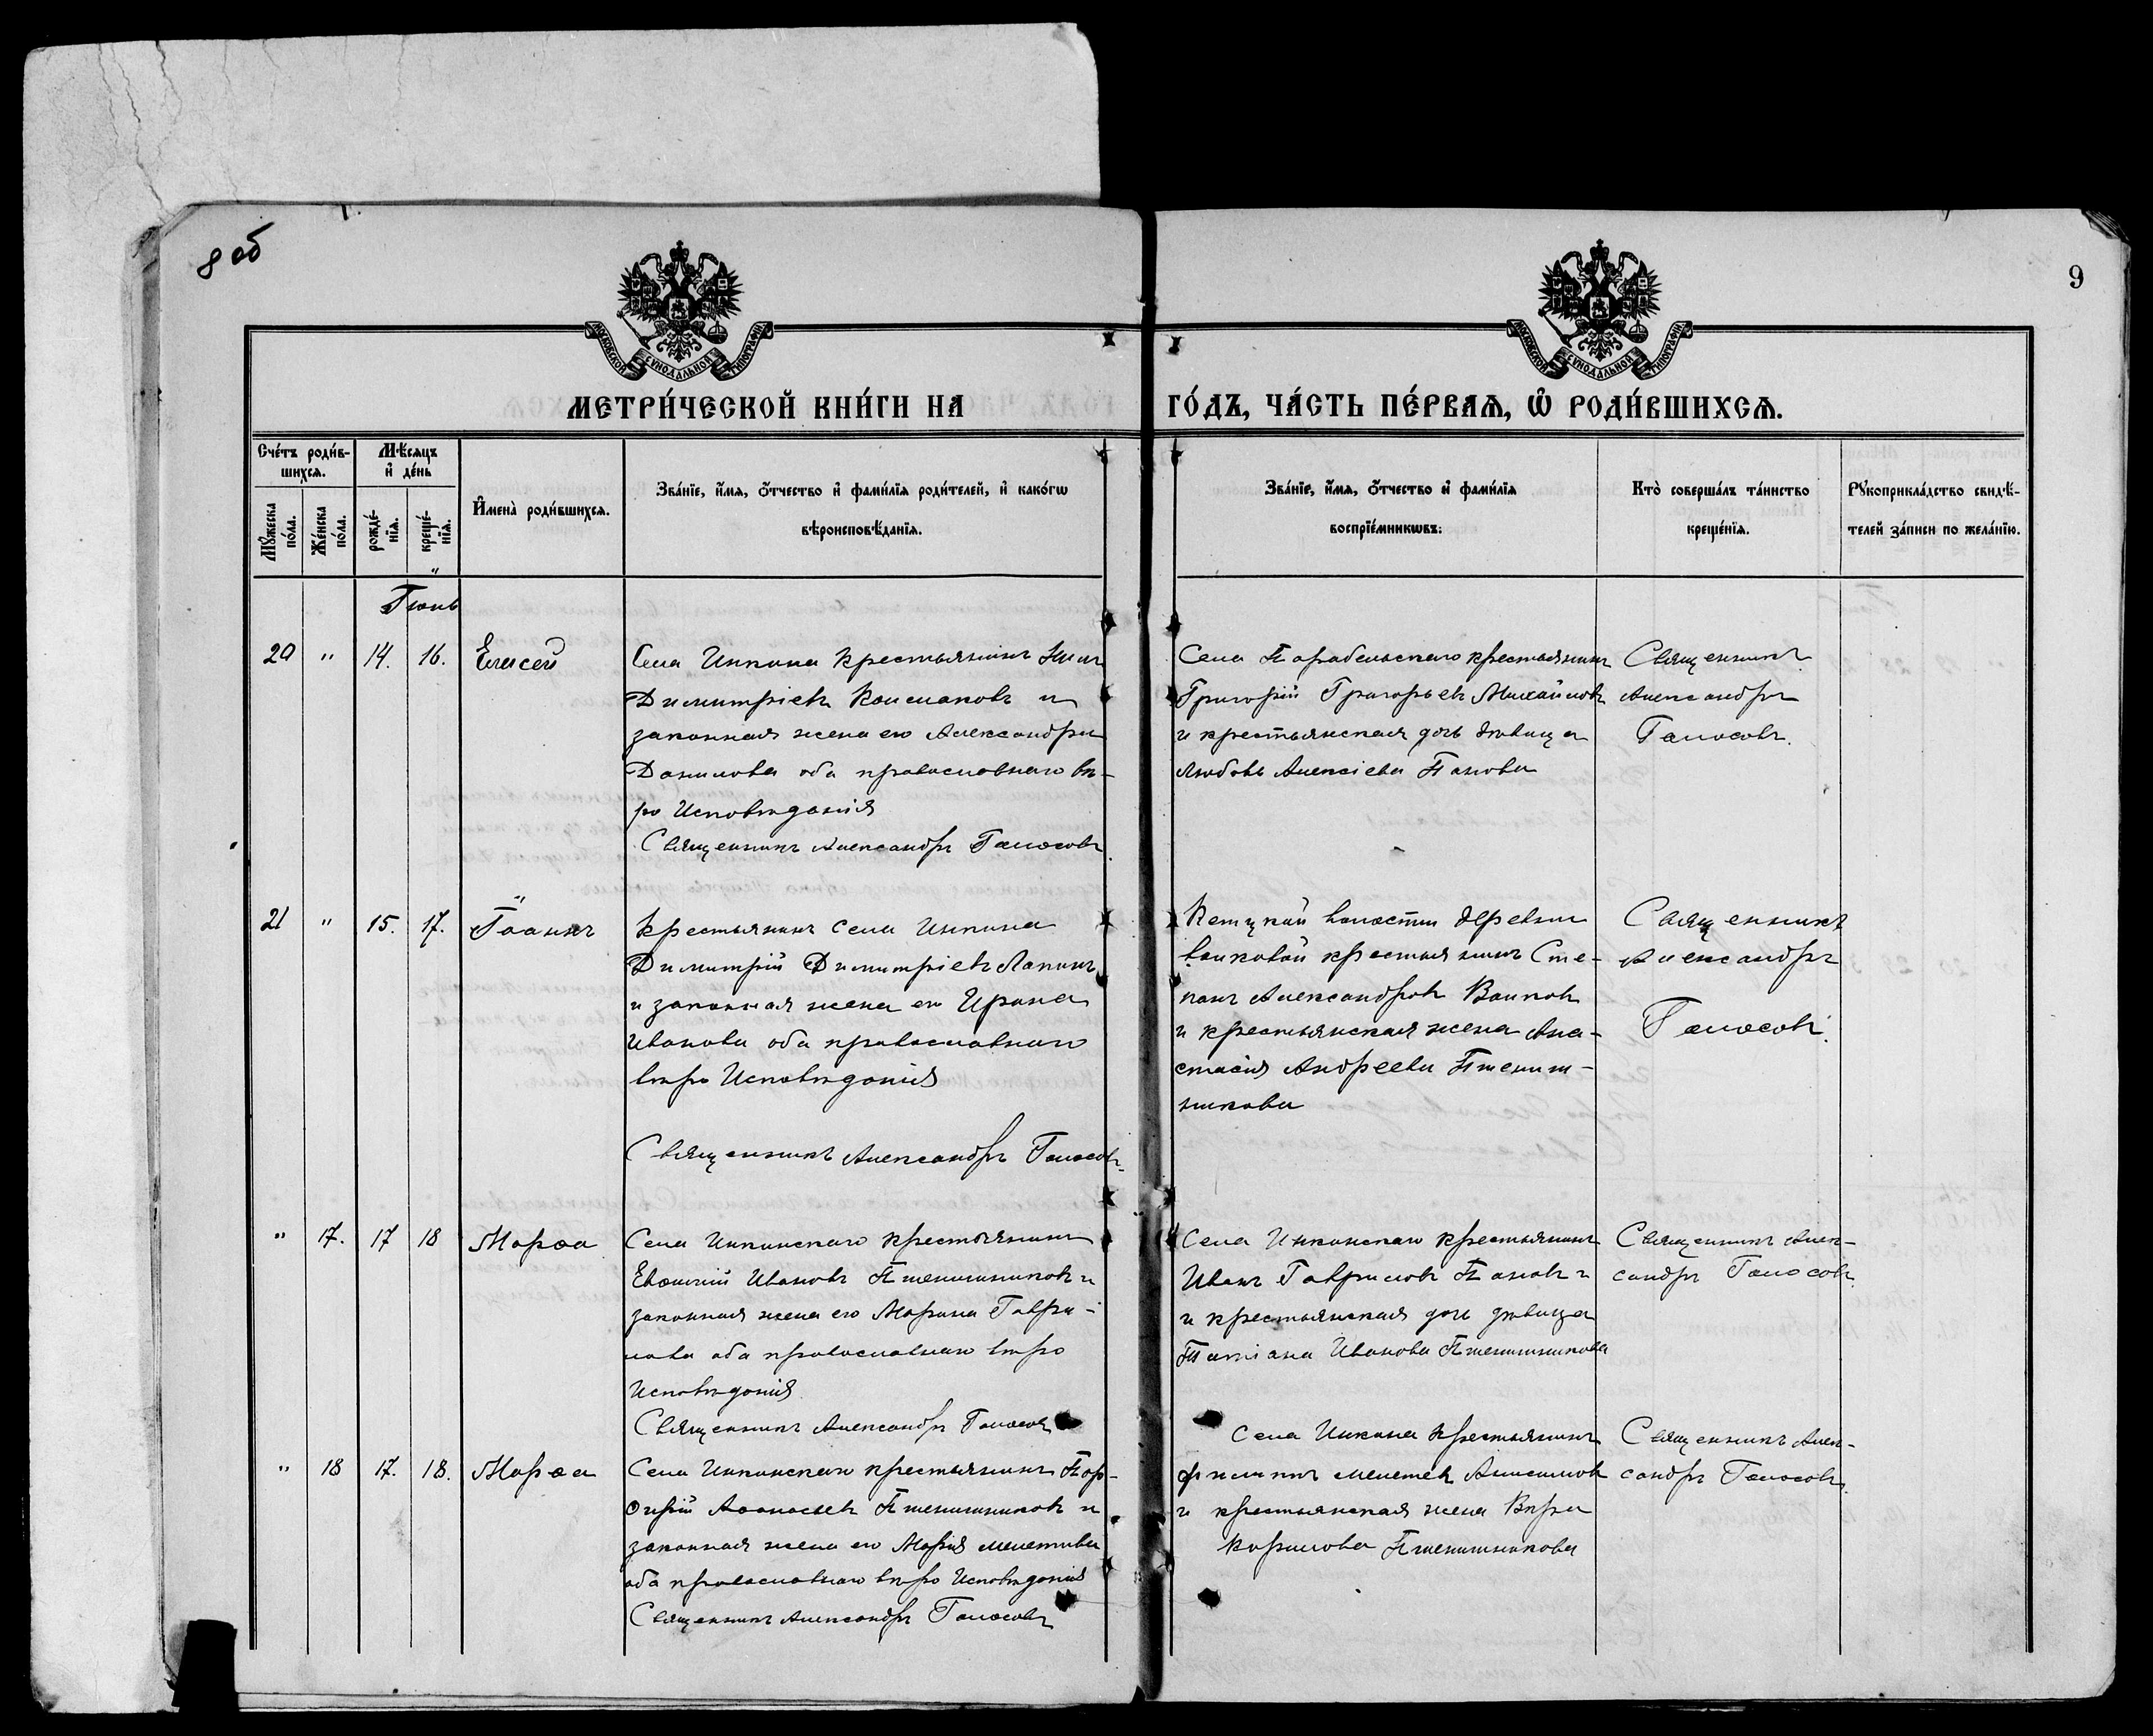 8 об
9
МОСКОВСКОЙ СѴНОДАЛЬНОЙ ТИПОГРАФІИ
МОСКОВСКОЙ СѴНОДАЛЬНОЙ ТИПОГРАФІИ
МЕТРИ́ЧЕСКОЙ КНИ́ГИ НА
ГО́ДЪ, ЧА́СТЬ ПЕ́РВАѦ, Ѽ РОДИ́ВШИХСѦ.
Сче́тъ роди́в-
шихсѧ.
Мѣ́сѧцъ
и҆ де́нь
Мꙋ́жеска
по́ла.
Же́нска
по́ла.
рожде́-
нїѧ.
креще́-
нїѧ.
И҆мена̀ роди́вшихсѧ.
Зва́нїе, и҆́мѧ, ѻ҆́тчество и҆ фами́лїѧ роди́телей, и҆ како́гѡ
вѣроисповѣ́данїѧ.
Зва́нїе, и҆́мѧ, ѻ҆́тчество и҆ фами́лїѧ
воспрїе́мникѡвъ:
Кто̀ соверша́лъ та́инство
креще́нїѧ.
Рꙋкоприкла́дство свидѣ́-
телей за́писи по жела́нїю.
Іюнь
20 " 14. 16. Елисей
Села Инкина крестьянинъ
Димитріевъ и
законная жена его Александра
Данилова оба православнаго вѣ-
ро Исповѣданія
Священникъ Александръ Голосовъ
Села Парабельскаго крестьянинъ
Григорій Григорьевъ Михайловъ
и крестьянская дочь дѣвица
Любовь Алексіева Панова
Священникъ
Александръ
Голосовъ.
21 " 15. 17. Іоаннъ
Крестьянинъ села Инкина
Димитрій Димитріевъ Лапинъ
и законная жена его Ирина
Иванова оба православнаго
вѣро Исповѣданія
Священникъ Александръ Голосовъ
Кетцкой волости деревни
Волковой крестьянинъ Сте-
панъ Александровъ Волковъ
и крестьянская жена Ана-
стасія Андреева Пшенич-
никова
Священникъ
Александръ
Голосовъ.
" 17. 17 18 Марѳа
Села Инкинскаго крестьянинъ
Евѳимій Ивановъ Пшеничниковъ и
законная жена его Марина Гаври-
лова оба православнаго вѣро
Исповѣданія
Священникъ Александръ Голосовъ
Села Инкинскаго крестьянинъ
Иванъ Гавриловъ Пановъ и
и крестьянская дочь дѣвица
Татіана Иванова Пшеничникова
Священникъ Алек-
сандръ Голосовъ.
" 18 17. 18. Марѳа
Села Инкинскаго крестьянинъ Пор-
ѳирій Аѳанасьевъ Пшеничниковъ и
законная жена его Марія Мелетиева
оба православнаго вѣро Исповѣданія
Священникъ Александръ Голосовъ
Села Инкина крестьянинъ
Филиппъ Анисимовъ
и крестьянская жена Вѣра
Карилова Пшеничникова
Священникъ Алек-
сандръ Голосовъ.